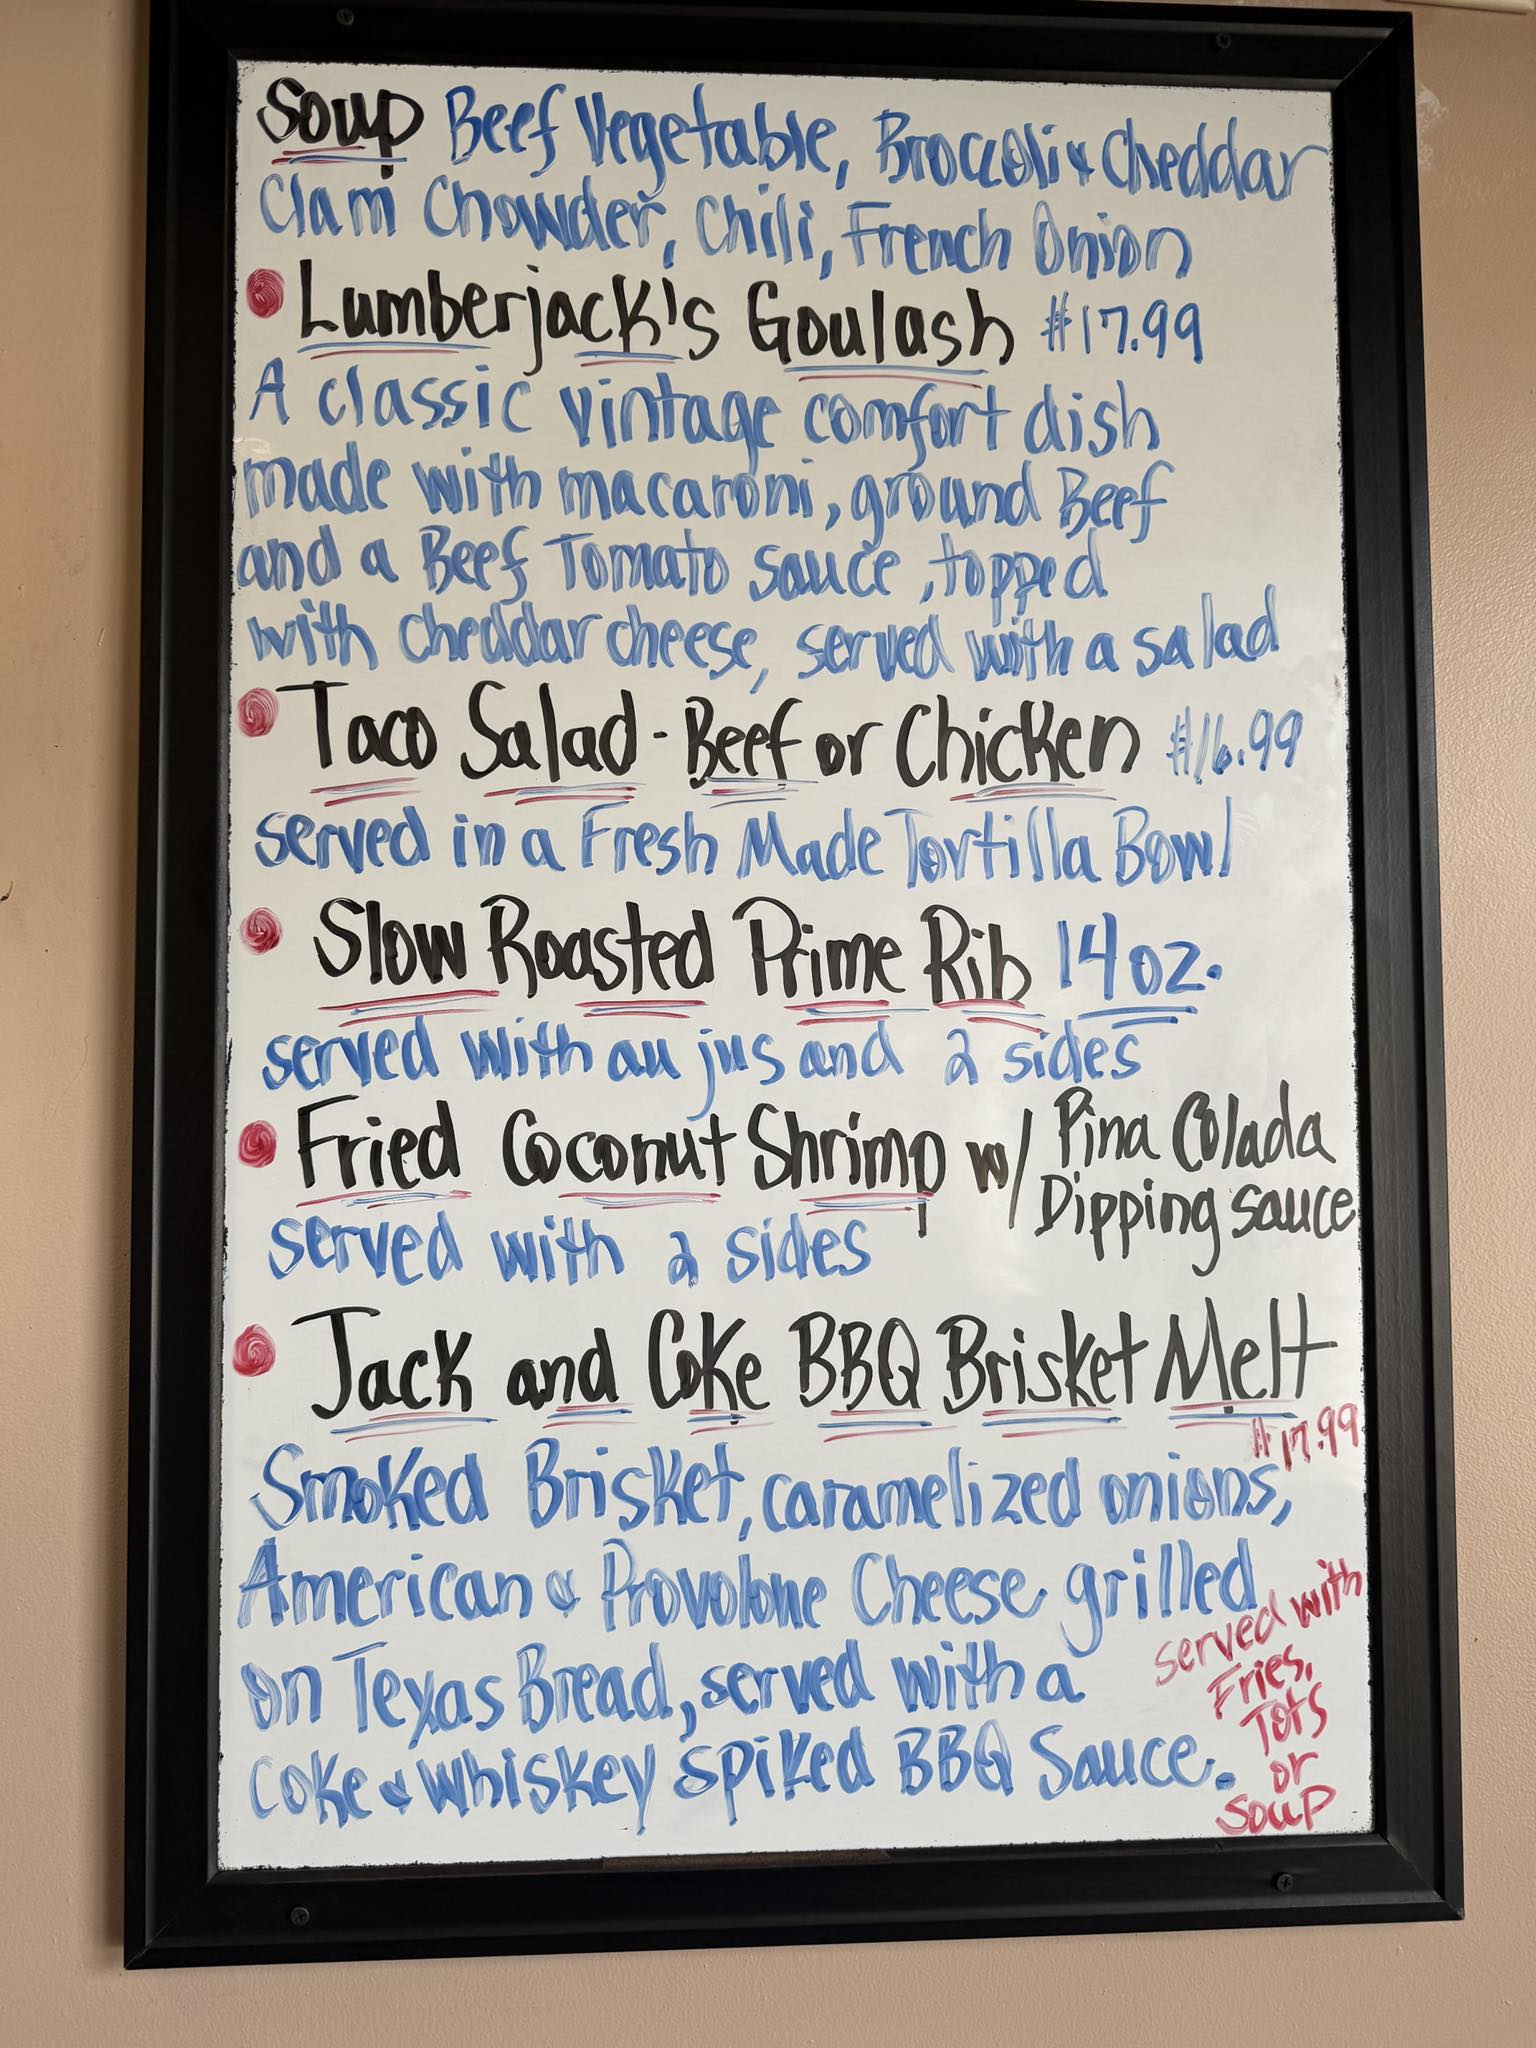 Soup Beef Vegetable, Broccoli & Cheddar
Clam Chowder, Chili, French Onion
Lumberjack's Goulash $17.99
A classic vintage comfort dish
made with macaroni, ground Beef
and a Beef Tomato sauce, topped
with cheddar cheese, served with a salad
Taco Salad - Beef or Chicken $16.99
served in a Fresh Made Tortilla Bowl
Slow Roasted Prime Rib 14oz.
served with au jus and 2 sides
Fried Coconut Shrimp w/ Pina Colada
Dipping sauce
served with 2 sides
Jack and Coke BBQ Brisket Melt
$17.99
Smoked Brisket, caramelized onions,
American & Provolone Cheese grilled
on Texas Bread, served with a
Coke & Whiskey spiked BBQ Sauce.
served with
Fries,
Tots
or
Soup